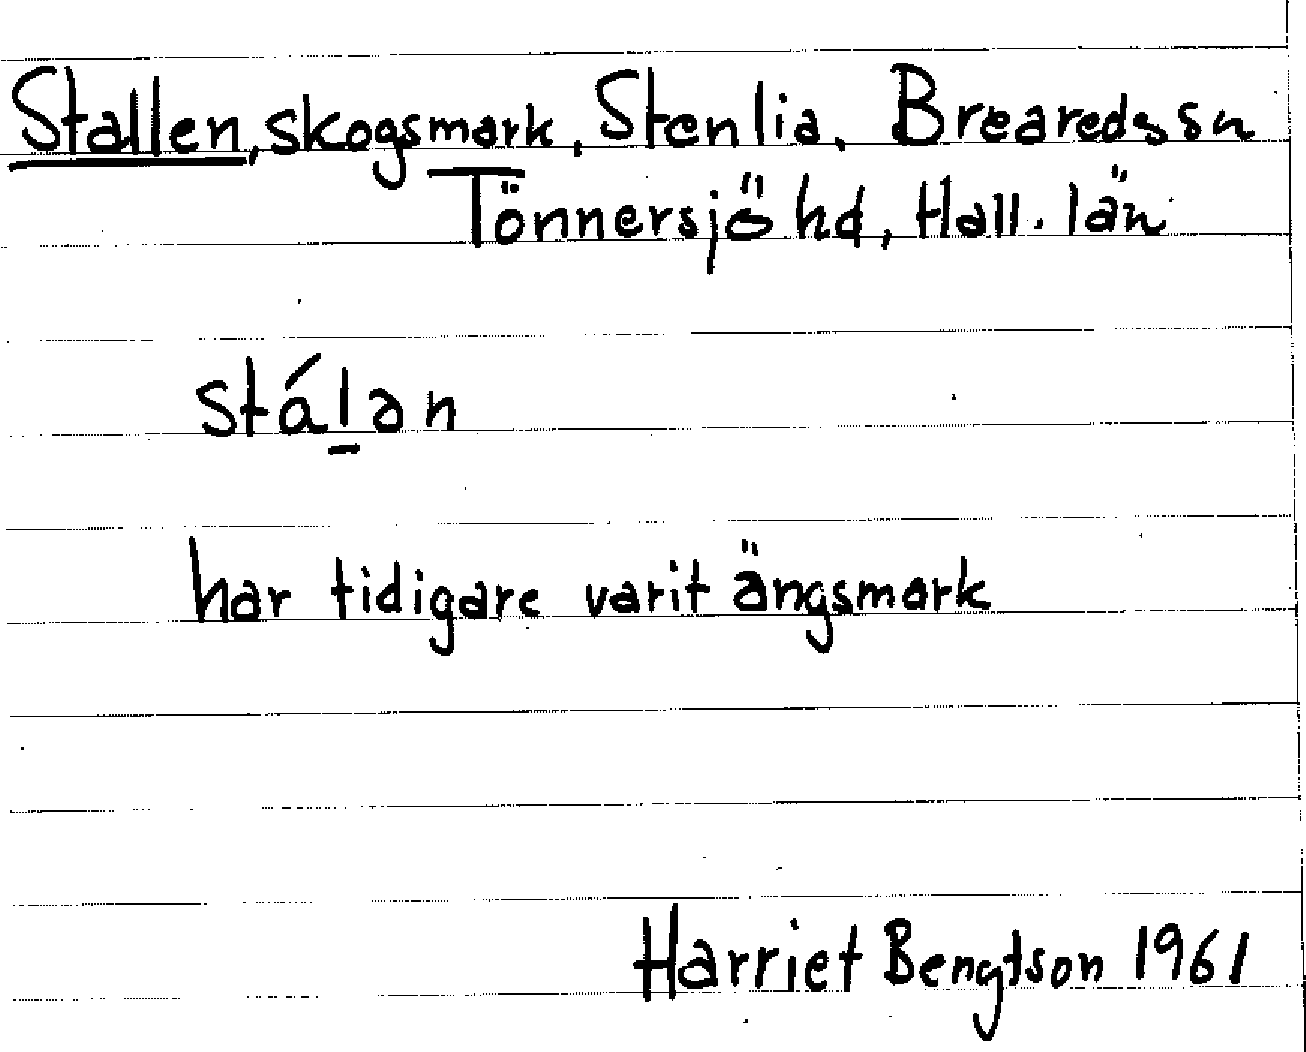 Stallen, skogsmark, Stenlia, Breareds sn
Tönnersjö hd, Hall. län
stál̲ən
har tidigare varit ängsmark
Harriet Bengtson 1961